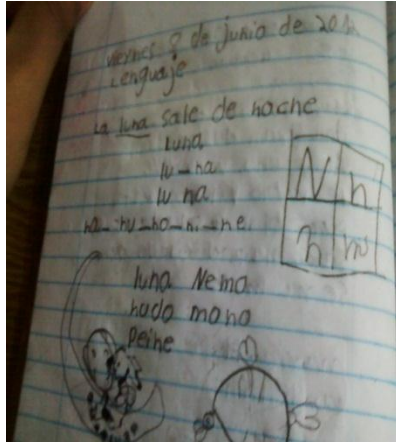 viernes 8 de junio de 201
Lenguaje
La luna sale de noche
luna
lu-na
lu na
na-nu-no-ni-ne
N n
n m
luna Nemo
nudo mono
Peine
3